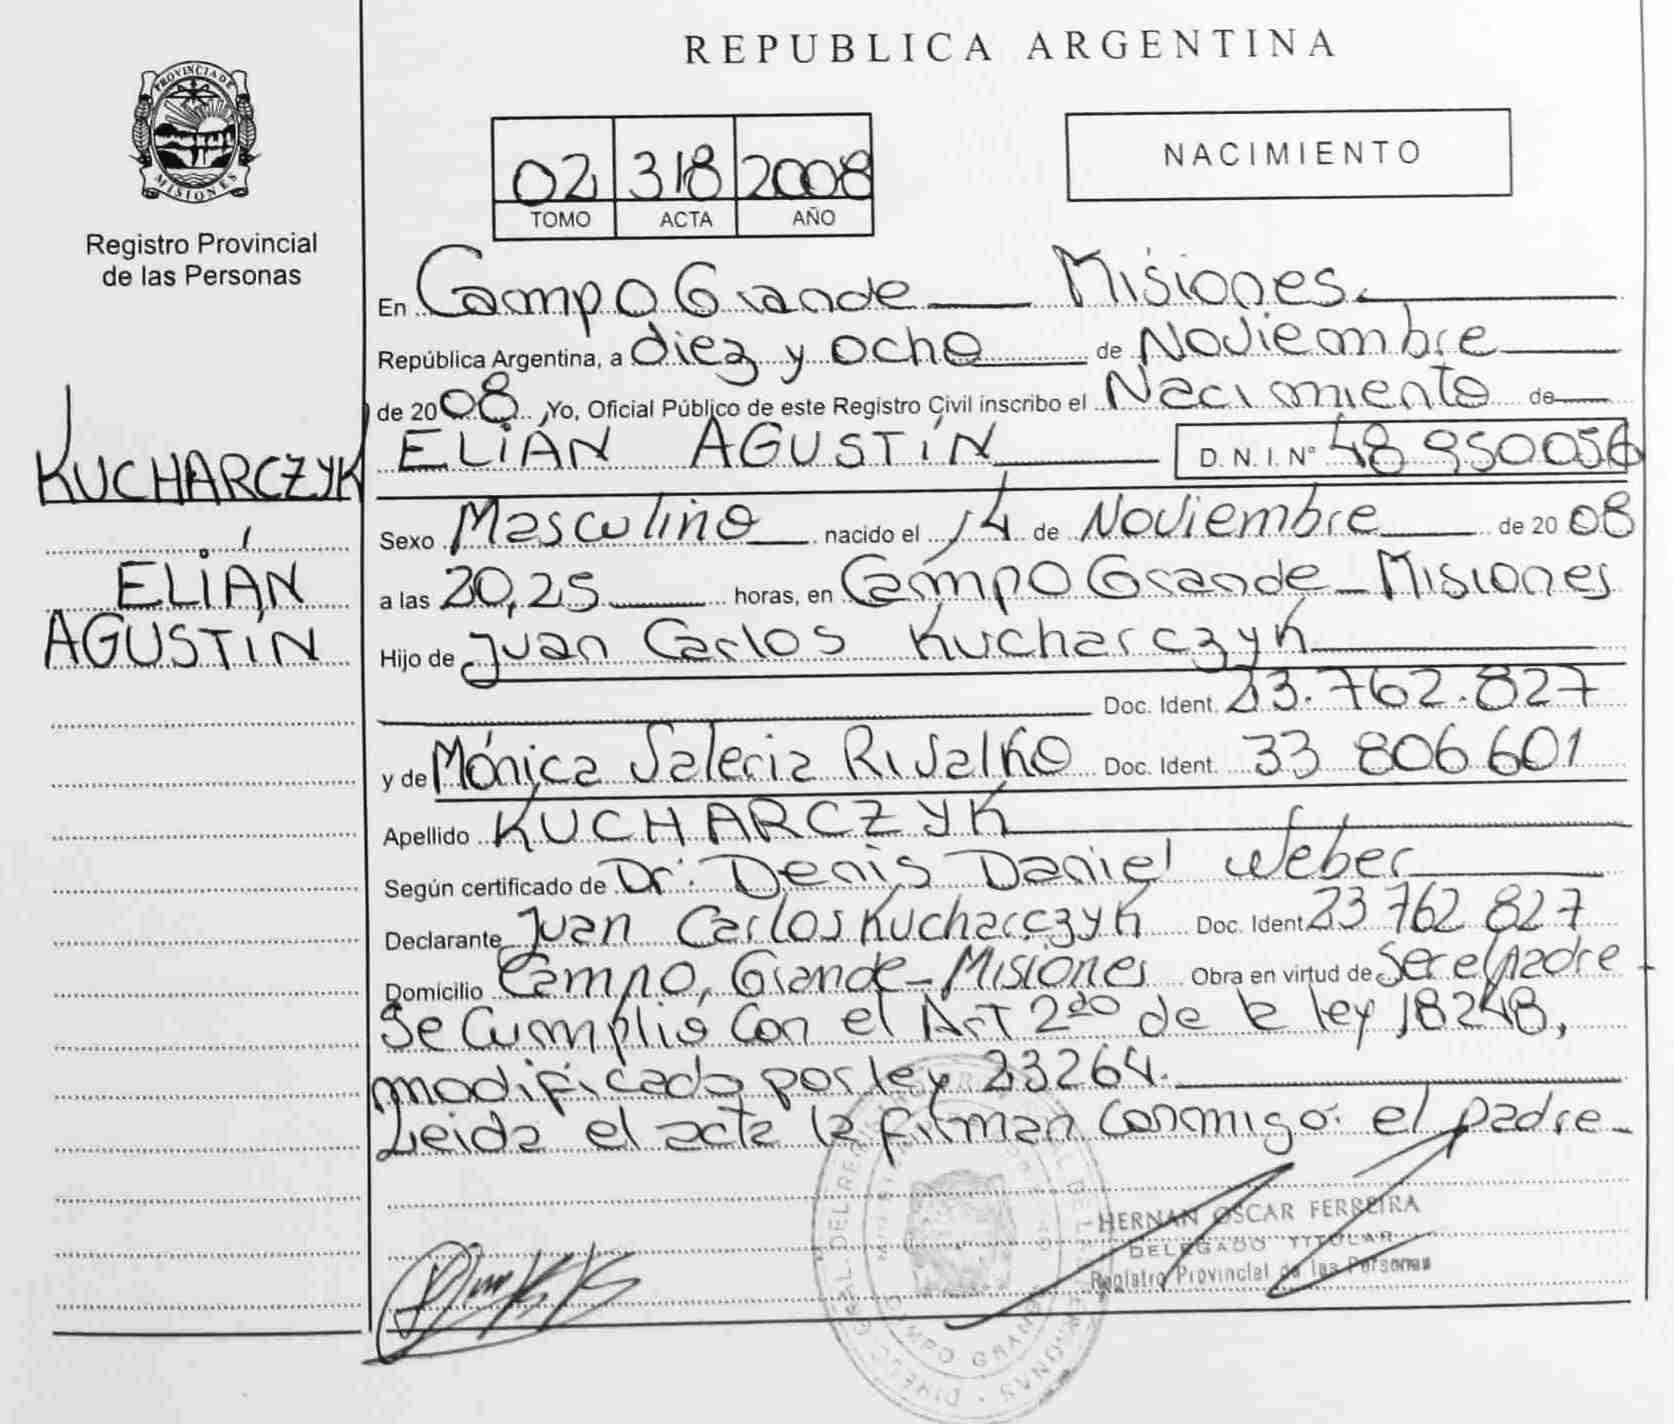 REPUBLICA ARGENTINA
PROVINCIA DE
MISIONES
Registro Provincial
de las Personas
02 318 2008
TOMO ACTA AÑO
NACIMIENTO
En Campo Grande Misiones
República Argentina, a diez y ocho de Noviembre
de 2008 Yo, Oficial Público de este Registro Civil inscribo el Nacimiento de
ELIÁN AGUSTÍN D. N. I. Nº 48 950056
KUCHARCZYK
ELIÁN
AGUSTÍN
Sexo Masculino nacido el 14 de Noviembre de 2008
a las 20,25 horas, en Campo Grande - Misiones
Hijo de Juan Carlos Kucharczyk
Doc. Ident. 23.762.827
y de Mónica Valeria Rivalko Doc. Ident. 33 806 601
Apellido KUCHARCZYK
Según certificado de Dr. Denis Daniel Weber
Declarante Juan Carlos Kucharczyk Doc. Ident 23 762 827
Domicilio Campo Grande - Misiones Obra en virtud de Ser el padre
Se Cumplio Con el Art 2do de la ley 18248,
modificado por ley 23264.
Leida el acta la firman conmigo: el padre
HERNAN OSCAR FERREIRA
DELEGADO TITULAR
Registro Provincial de las Personas
CAMPO GRANDE